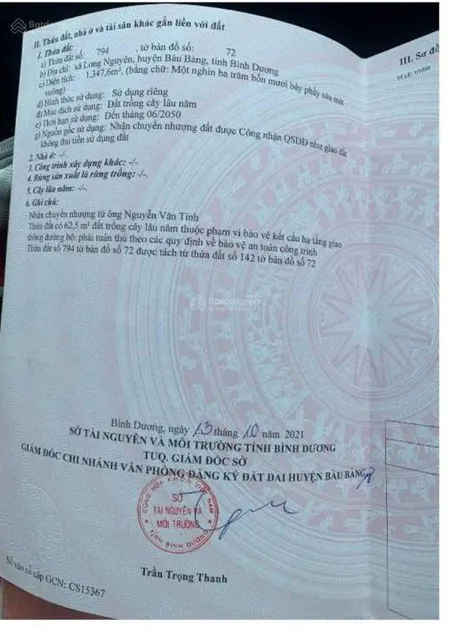 II. Thửa đất, nhà ở và tài sản khác gắn liền với đất
1. Thửa đất:
a) Thửa đất số: 794, tờ bản đồ số: 72
b) Địa chỉ: xã Long Nguyên, huyện Bàu Bàng, tỉnh Bình Dương
c) Diện tích: 1.347,6m², (bằng chữ: Một nghìn ba trăm bốn mươi bảy phẩy sáu mét
vuông)
d) Hình thức sử dụng: Sử dụng riêng
đ) Mục đích sử dụng: Đất trồng cây lâu năm
e) Thời hạn sử dụng: Đến tháng 06/2050
g) Nguồn gốc sử dụng: Nhận chuyển nhượng đất được Công nhận QSDĐ như giao đất
không thu tiền sử dụng đất
2. Nhà ở: -/-
3. Công trình xây dựng khác: -/-
4. Rừng sản xuất là rừng trồng: -/-
5. Cây lâu năm: -/-
6. Ghi chú:
Nhận chuyển nhượng từ ông Nguyễn Văn Tính
Thửa đất có 62,5 m² đất trồng cây lâu năm thuộc phạm vi bảo vệ kết cấu hạ tầng giao
thông đường bộ; phải tuân thủ theo các quy định về bảo vệ an toàn công trình
Thửa đất số 794 tờ bản đồ số 72 được tách từ thửa đất số 142 tờ bản đồ số 72
III. Sơ đồ
TỶ LỆ: 1/1000
Batdongsan
Bình Dương, ngày 13 tháng 10 năm 2021
SỞ TÀI NGUYÊN VÀ MÔI TRƯỜNG TỈNH BÌNH DƯƠNG
TUQ. GIÁM ĐỐC SỞ
GIÁM ĐỐC CHI NHÁNH VĂN PHÒNG ĐĂNG KÝ ĐẤT ĐAI HUYỆN BÀU BÀNG
CỘNG HÒA X.H.C.N VIỆT NAM
SỞ
TÀI NGUYÊN VÀ
MÔI TRƯỜNG
TỈNH BÌNH DƯƠNG
Trần Trọng Thanh
Số vào sổ cấp GCN: CS15367